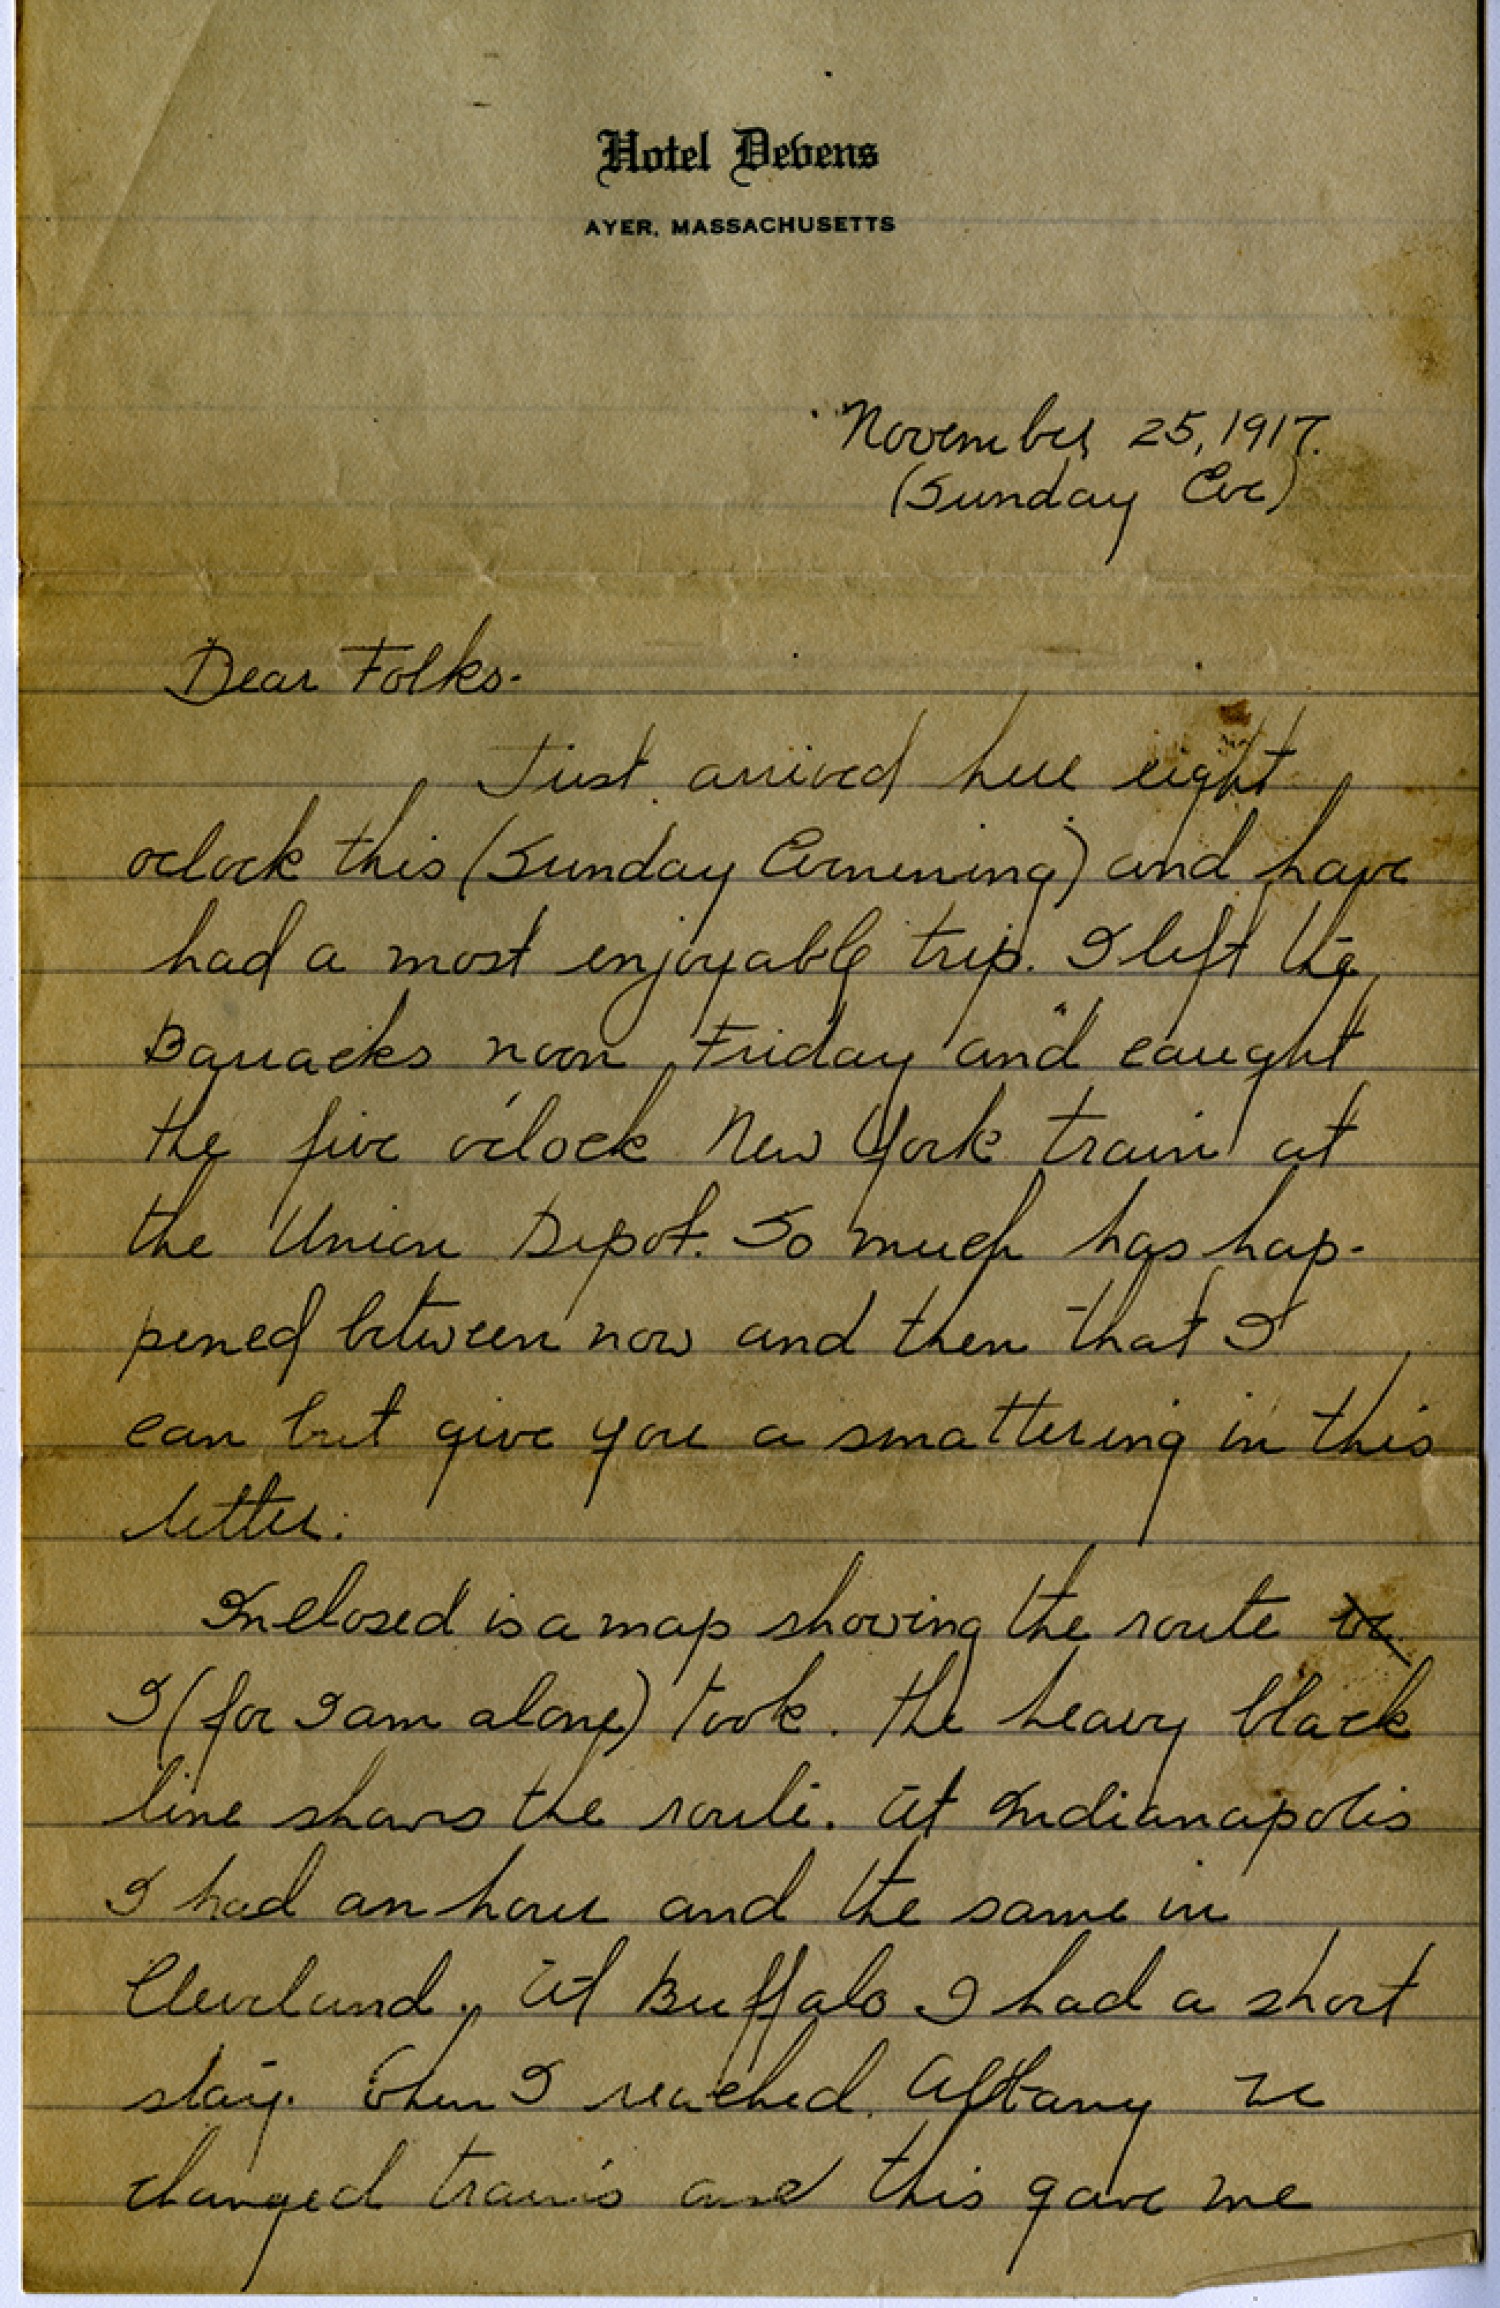 Hotel Devens
AYER, MASSACHUSETTS
November 25, 1917.
(Sunday Eve)
Dear Folks-
Just arrived here eight
oclock this (Sunday Evenening) and have
had a most enjoyable trip. I left the
Barracks noon Friday and caught
the five o'clock New York train at
the Union Depot. So much has hap-
pened between now and then that I
can but give you a smattering in this
letter.
Inclosed is a map showing the route
I (for I am alone) took. The heavy black
line shows the route. At Indianapolis
I had an hour and the same in
Cleveland. At Buffalo I had a short
stay. When I reached Albany
changed trains and this gave me